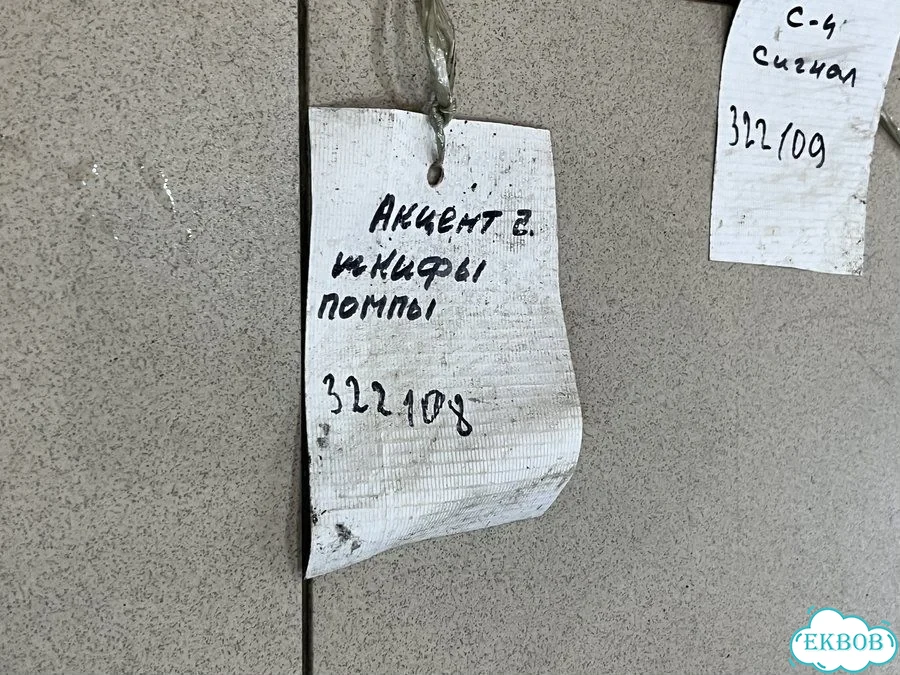 Акцент 2.
шкифы
помпы
322108
С-4
Сигнал
322109
EKBOB